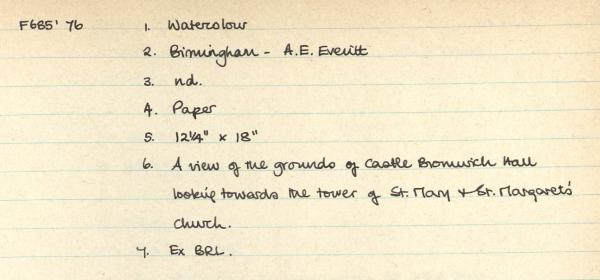 F685' 76 1. Watercolour
2. Birmingham - A.E. Everitt
3. nd.
4. Paper
5. 12¼" x 18"
6. A view of the grounds of Castle Bromwich Hall
looking towards the tower of St. Mary & St. Margaret's
church.
7. Ex BRL.